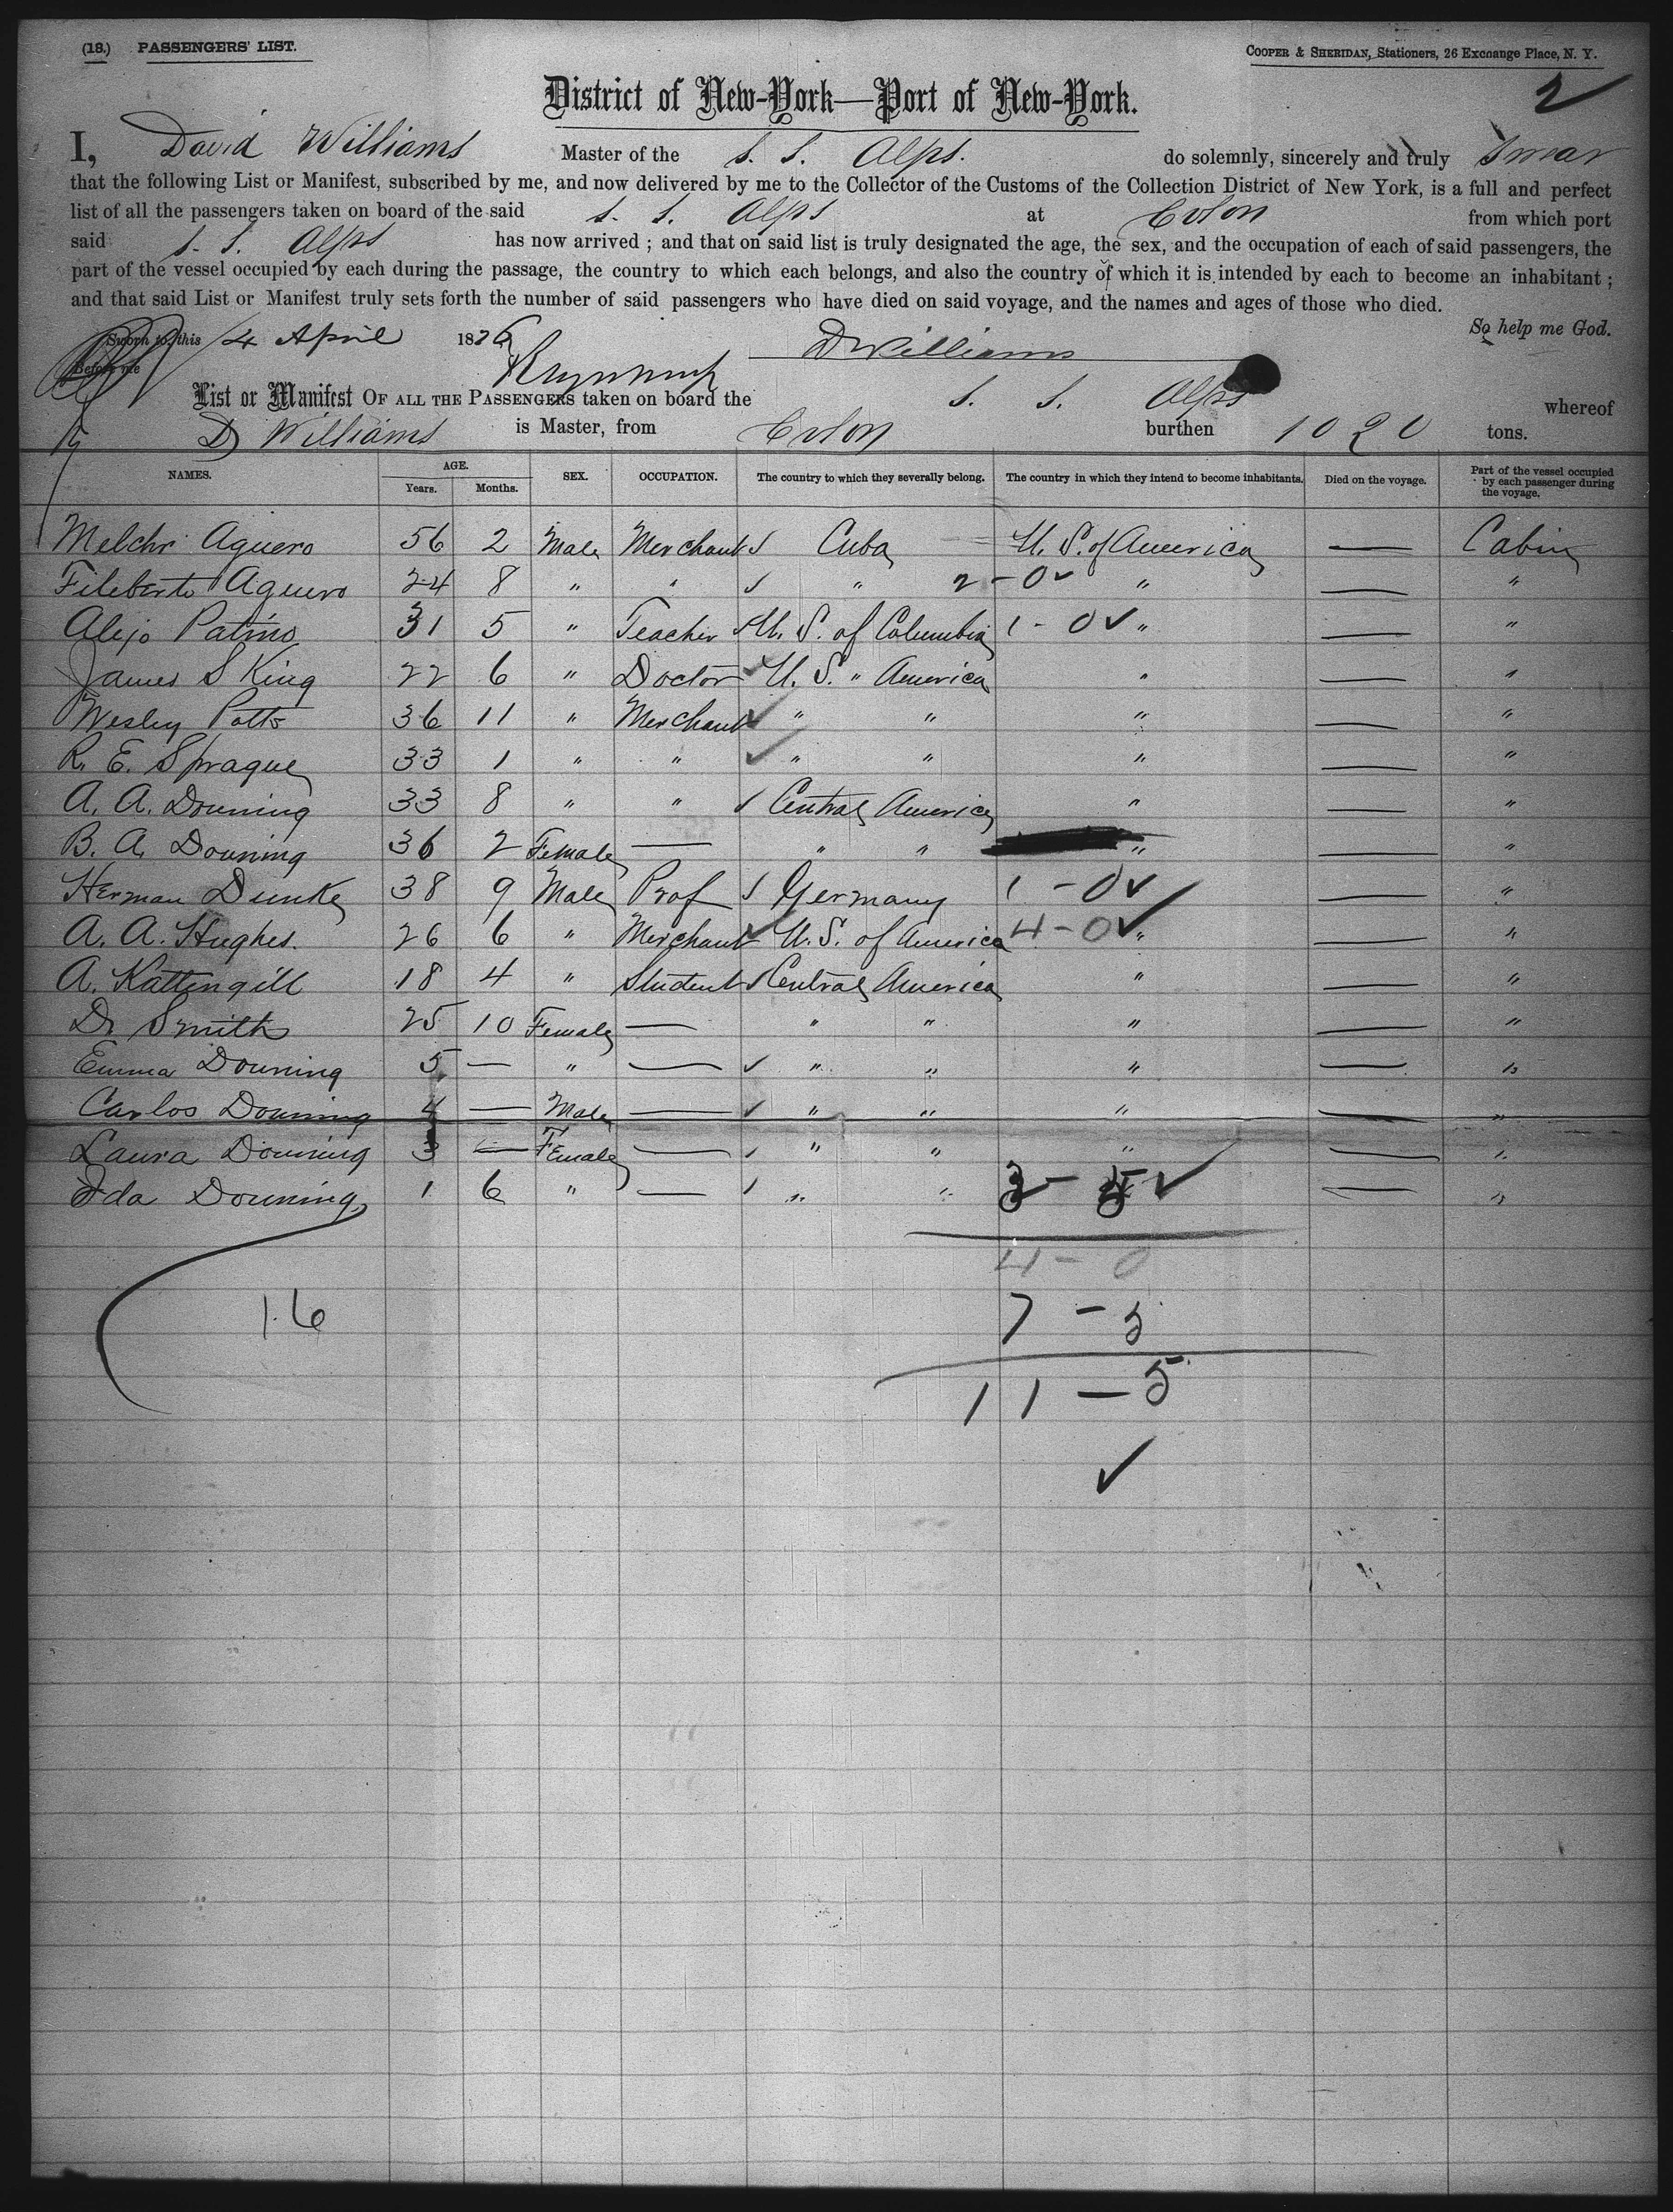 (18.) PASSENGERS' LIST.
COOPER & SHERIDAN, Stationers, 26 Exchange Place, N. Y.
2
District of New-York—Port of New-York.
I, David Williams Master of the S. S. Alps. do solemnly, sincerely and truly Swear
that the following List or Manifest, subscribed by me, and now delivered by me to the Collector of the Customs of the Collection District of New York, is a full and perfect
list of all the passengers taken on board of the said S. S. Alps at Colon from which port
said S. S. Alps has now arrived ; and that on said list is truly designated the age, the sex, and the occupation of each of said passengers, the
part of the vessel occupied by each during the passage, the country to which each belongs, and also the country of which it is intended by each to become an inhabitant ;
and that said List or Manifest truly sets forth the number of said passengers who have died on said voyage, and the names and ages of those who died.
So help me God.
Sworn to this 4 April 1876 DWilliams
Before me
List or Manifest OF ALL THE PASSENGERS taken on board the S. S. Alps whereof
D Williams is Master, from Colon burthen 1020 tons.
NAMES. AGE. Years. Months. SEX. OCCUPATION. The country to which they severally belong. The country in which they intend to become inhabitants. Died on the voyage. Part of the vessel occupied by each passenger during the voyage.
Melchr Aguero 56 2 Male Merchant Cuba U. S. of America — Cabin
Fileberto Aguero 24 8 " " " 2-0 " — "
Alejo Patino 31 5 " Teacher U. S. of Columbia 1-0 " — "
James S King 22 6 " Doctor U. S. " America " — "
Wesley Potts 36 11 " Merchant " " " — "
R. E. Sprague 33 1 " " " " " — "
A. A. Douning 33 8 " " Central America " — "
B. A. Douning 36 2 Female — " " " — "
Herman Dunke 38 9 Male Prof Germany 1-0 — "
A. A. Hughes. 26 6 " Merchant U. S. of America 4-0 " — "
A. Kattengill 18 4 " Student Central America " — "
D. Smith 25 10 Female — " " " — "
Emma Douning 5 — " — " " " — "
Carlos Douning 4 — Male — " " " — "
Laura Douning 3 — Female — " " " — "
Ida Douning 1 6 " — " " 3-5 — "
4-0
16
7-5
11-5